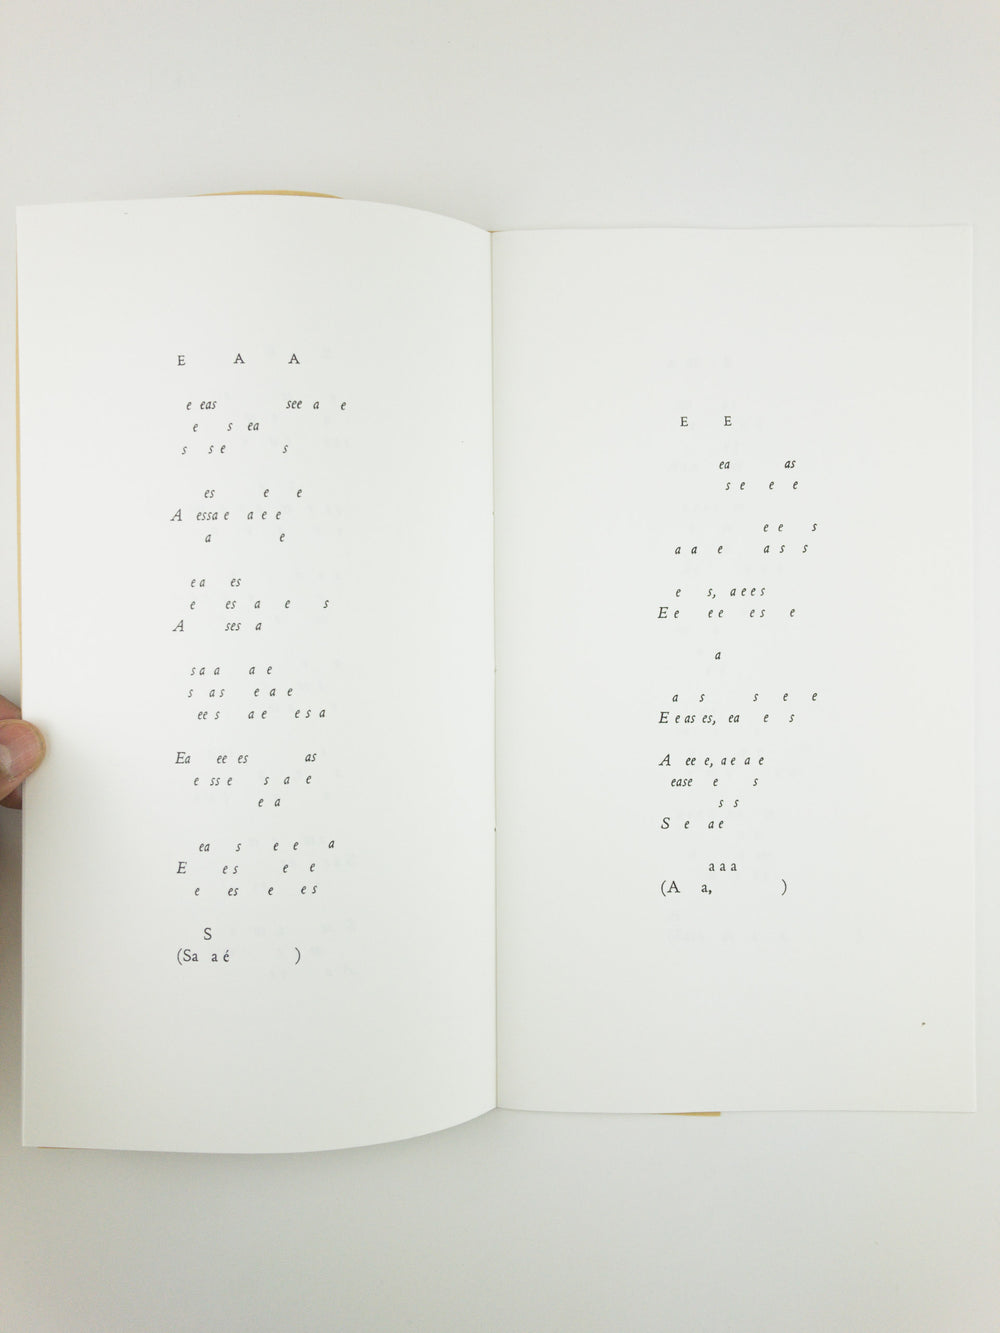 E A A
e eas see a e
e s ea
s s e s
es e e
A essa e a e e
a e
e a es
e es a e s
A ses a
s a a a e
s a s e a e
ee s a e e s a
Ea ee es as
e ss e s a e
e a
ea s e e a
E e s e e
e es e e s
S
(Sa a é )
E E
ea as
s e e e
e e s
a a e a s s
e s, a e e s
E e e e e s e
a
a s s e e
E e as es, ea e s
A ee e, a e a e
ease e s
s s
S e a e
a a a
(A a, )